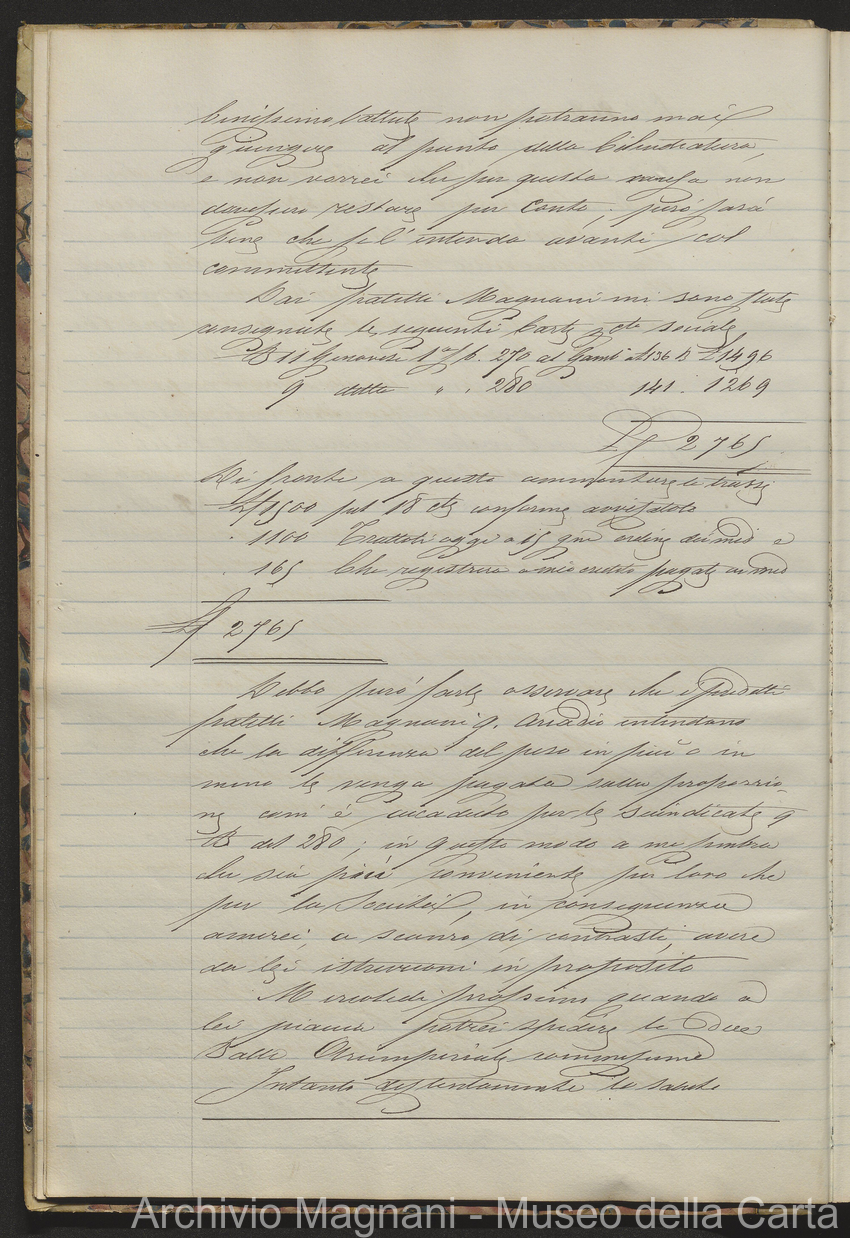 benissimo battute non potranno mai
giungere al punto della Cilindratura,
e non vorrei che per questa causa non
dovessero restare per conto; però farà
bene che se l'intenda avanti col
committente
Dai fratelli Magnani mi sono state
consegnate le seguenti Carte p cto sociale
B 11 Genovese 1a f b. 270 al Gamb at 136 B £1496
9 dette " . 280 141 . 1269
£ 2765
Di fronte a questo ammontare le trassi
£ 1500 pel 18 cte conforme avvisatolo
" 1100 Trattoli oggi a 15 gni ordine dei med e
" 165 Che registrerà a mio credito pagate ai med
£ 2765
Debbo però farle osservare che i prodotti
fratelli Magnani q. intendano
che la differenza del peso in più o in
meno le venga pagata sulla proporzio
ne com' è accaduto per le suindicate 9
B del 280; in questo modo a me sembra
che sia più conveniente per loro che
per la Società, in conseguenza
amerei, a scanzo di contrasti, avere
da lei istruzioni in proposito
Mercoledi prossimo quando a
lei piaccia potrei spedire le due
Balle commessemi
Intanto distintamente la saluto
Archivio Magnani - Museo della Carta